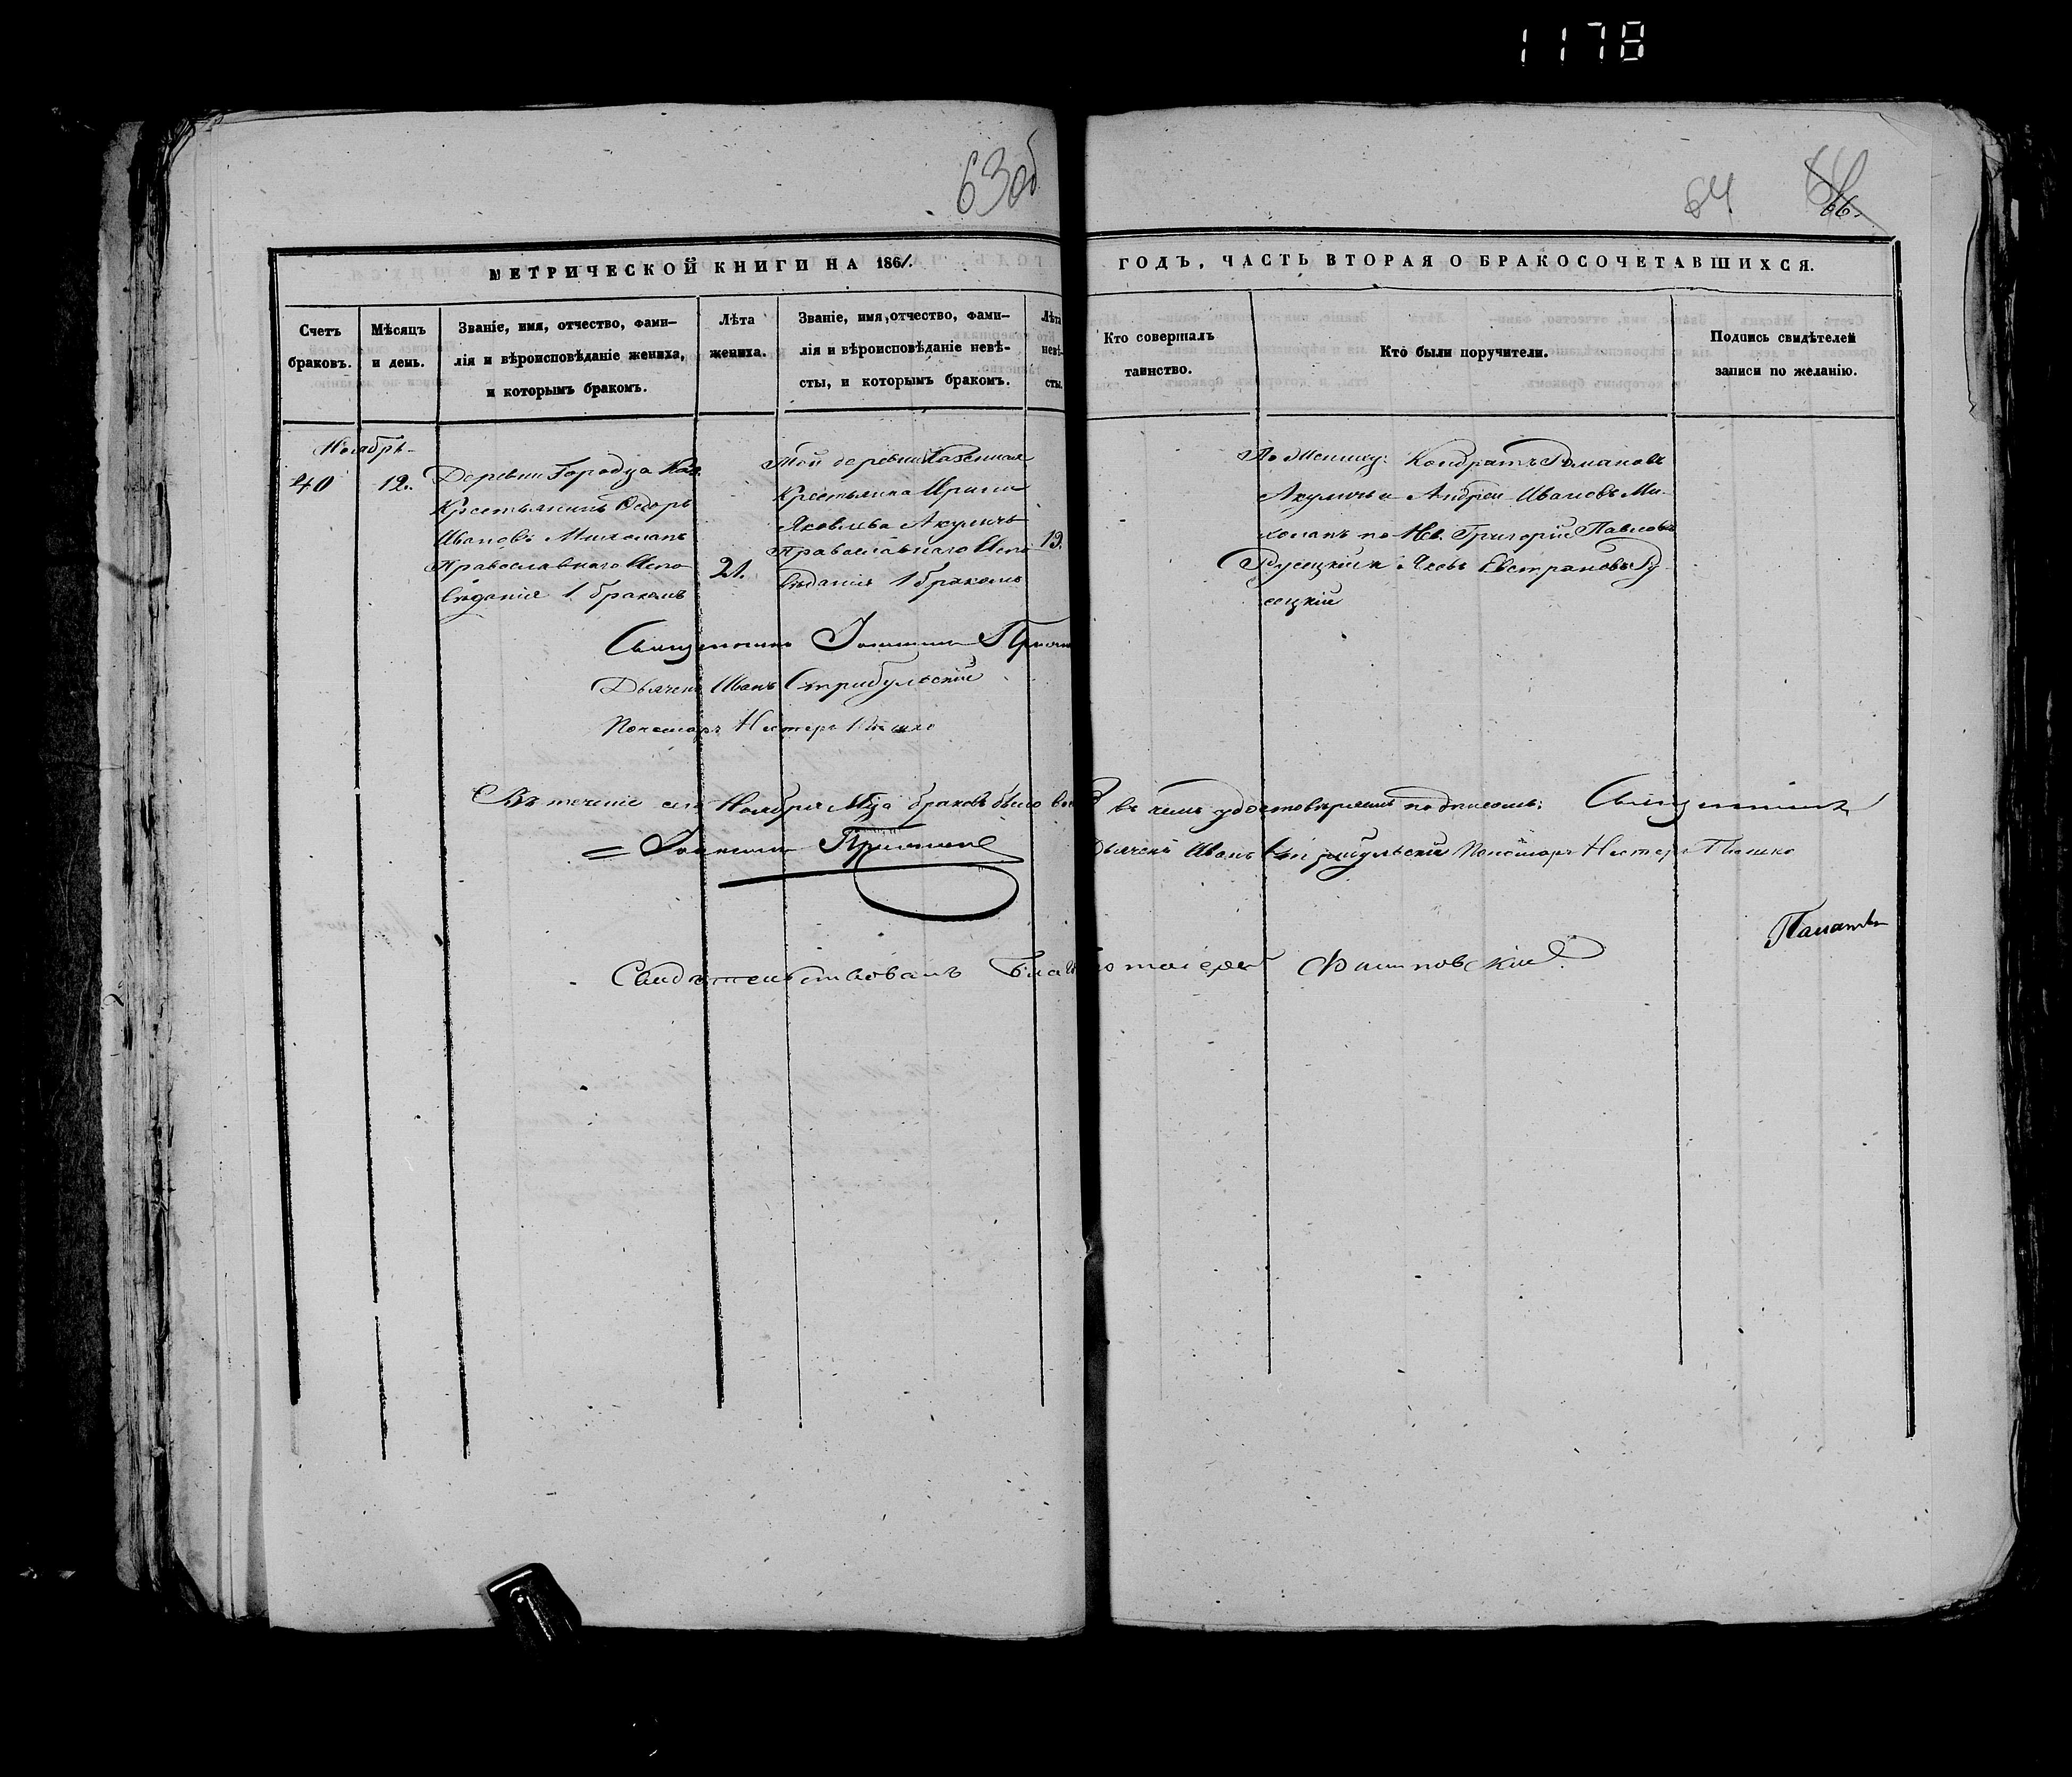 1178
63об
64
66.
МЕТРИЧЕСКОЙ КНИГИ НА 1861.
ГОДЪ, ЧАСТЬ ВТОРАЯ О БРАКОСОЧЕТАВШИХСЯ.
Счетъ
браковъ.
Мѣсяцъ
и день.
Званіе, имя, отчество, фами-
лія и вѣроисповѣданіе жениха,
и которымъ бракомъ.
Лѣта
жениха.
Званіе, имя, отчество, фами-
лія и вѣроисповѣданіе невѣ-
сты, и которымъ бракомъ.
Лѣта
невѣ-
сты.
Кто совершалъ
таинство.
Кто были поручители.
Подпись свидѣтелей
записи по желанію.
Ноябрь
40
12.
Деревни Городца Каз.
Крестьянинъ Ѳедоръ
Ивановъ Михолапъ
Православнаго Испо
вѣданія 1 бракомъ
21.
Той деревни Казенная
Крестьянка Ирина
Яковлева Акуличъ
Православнаго Испо
вѣданія 1 бракомъ
19.
По Жениху: Кондратъ Романовъ
Акуличъ и Андрей Ивановъ Ми-
холапъ по Нев. Григорій Павловъ
Русецкій и Яковъ Евстратовъ Ру
сецкій
Священникъ
Дьячекъ Иванъ Стрибульскій
Пономарь Нестеръ
Въ теченіе сего Ноября М-ца браковъ было
въ чемъ удостовѣряемъ подписомъ: Священникъ
Дьячекъ Иванъ Стрибульскій Пономарь Нестеръ
Свидѣтельствовалъ Благо